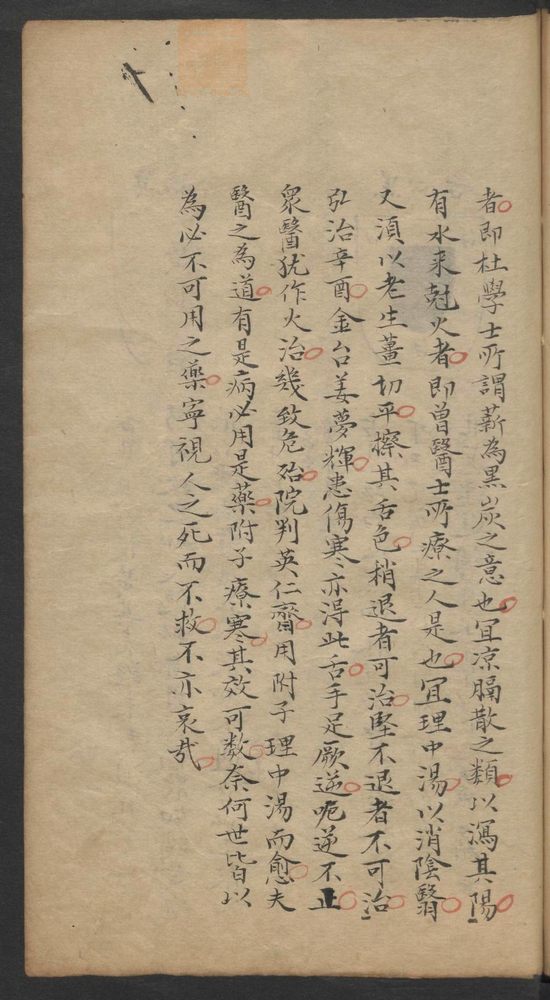 者即杜學士所謂薪為黒炭之意也冝凉膈散之類以瀉其陽
有水来尅火者即曽醫士所療之人是也冝理中湯以消陰翳
又湏以老生薑切平擦其舌色稍退者可治堅不退者不可治
弘治辛酉金台姜夢輝患傷寒亦得此舌手足厥逆呃逆不止
衆醫犹作火治幾致危殆院判英仁齋用附子理中湯而愈夫
醫之為道有是病必用是藥附子療寒其效可数奈何世皆以
為必不可用之藥寧視人之死而不救不亦哀㢤